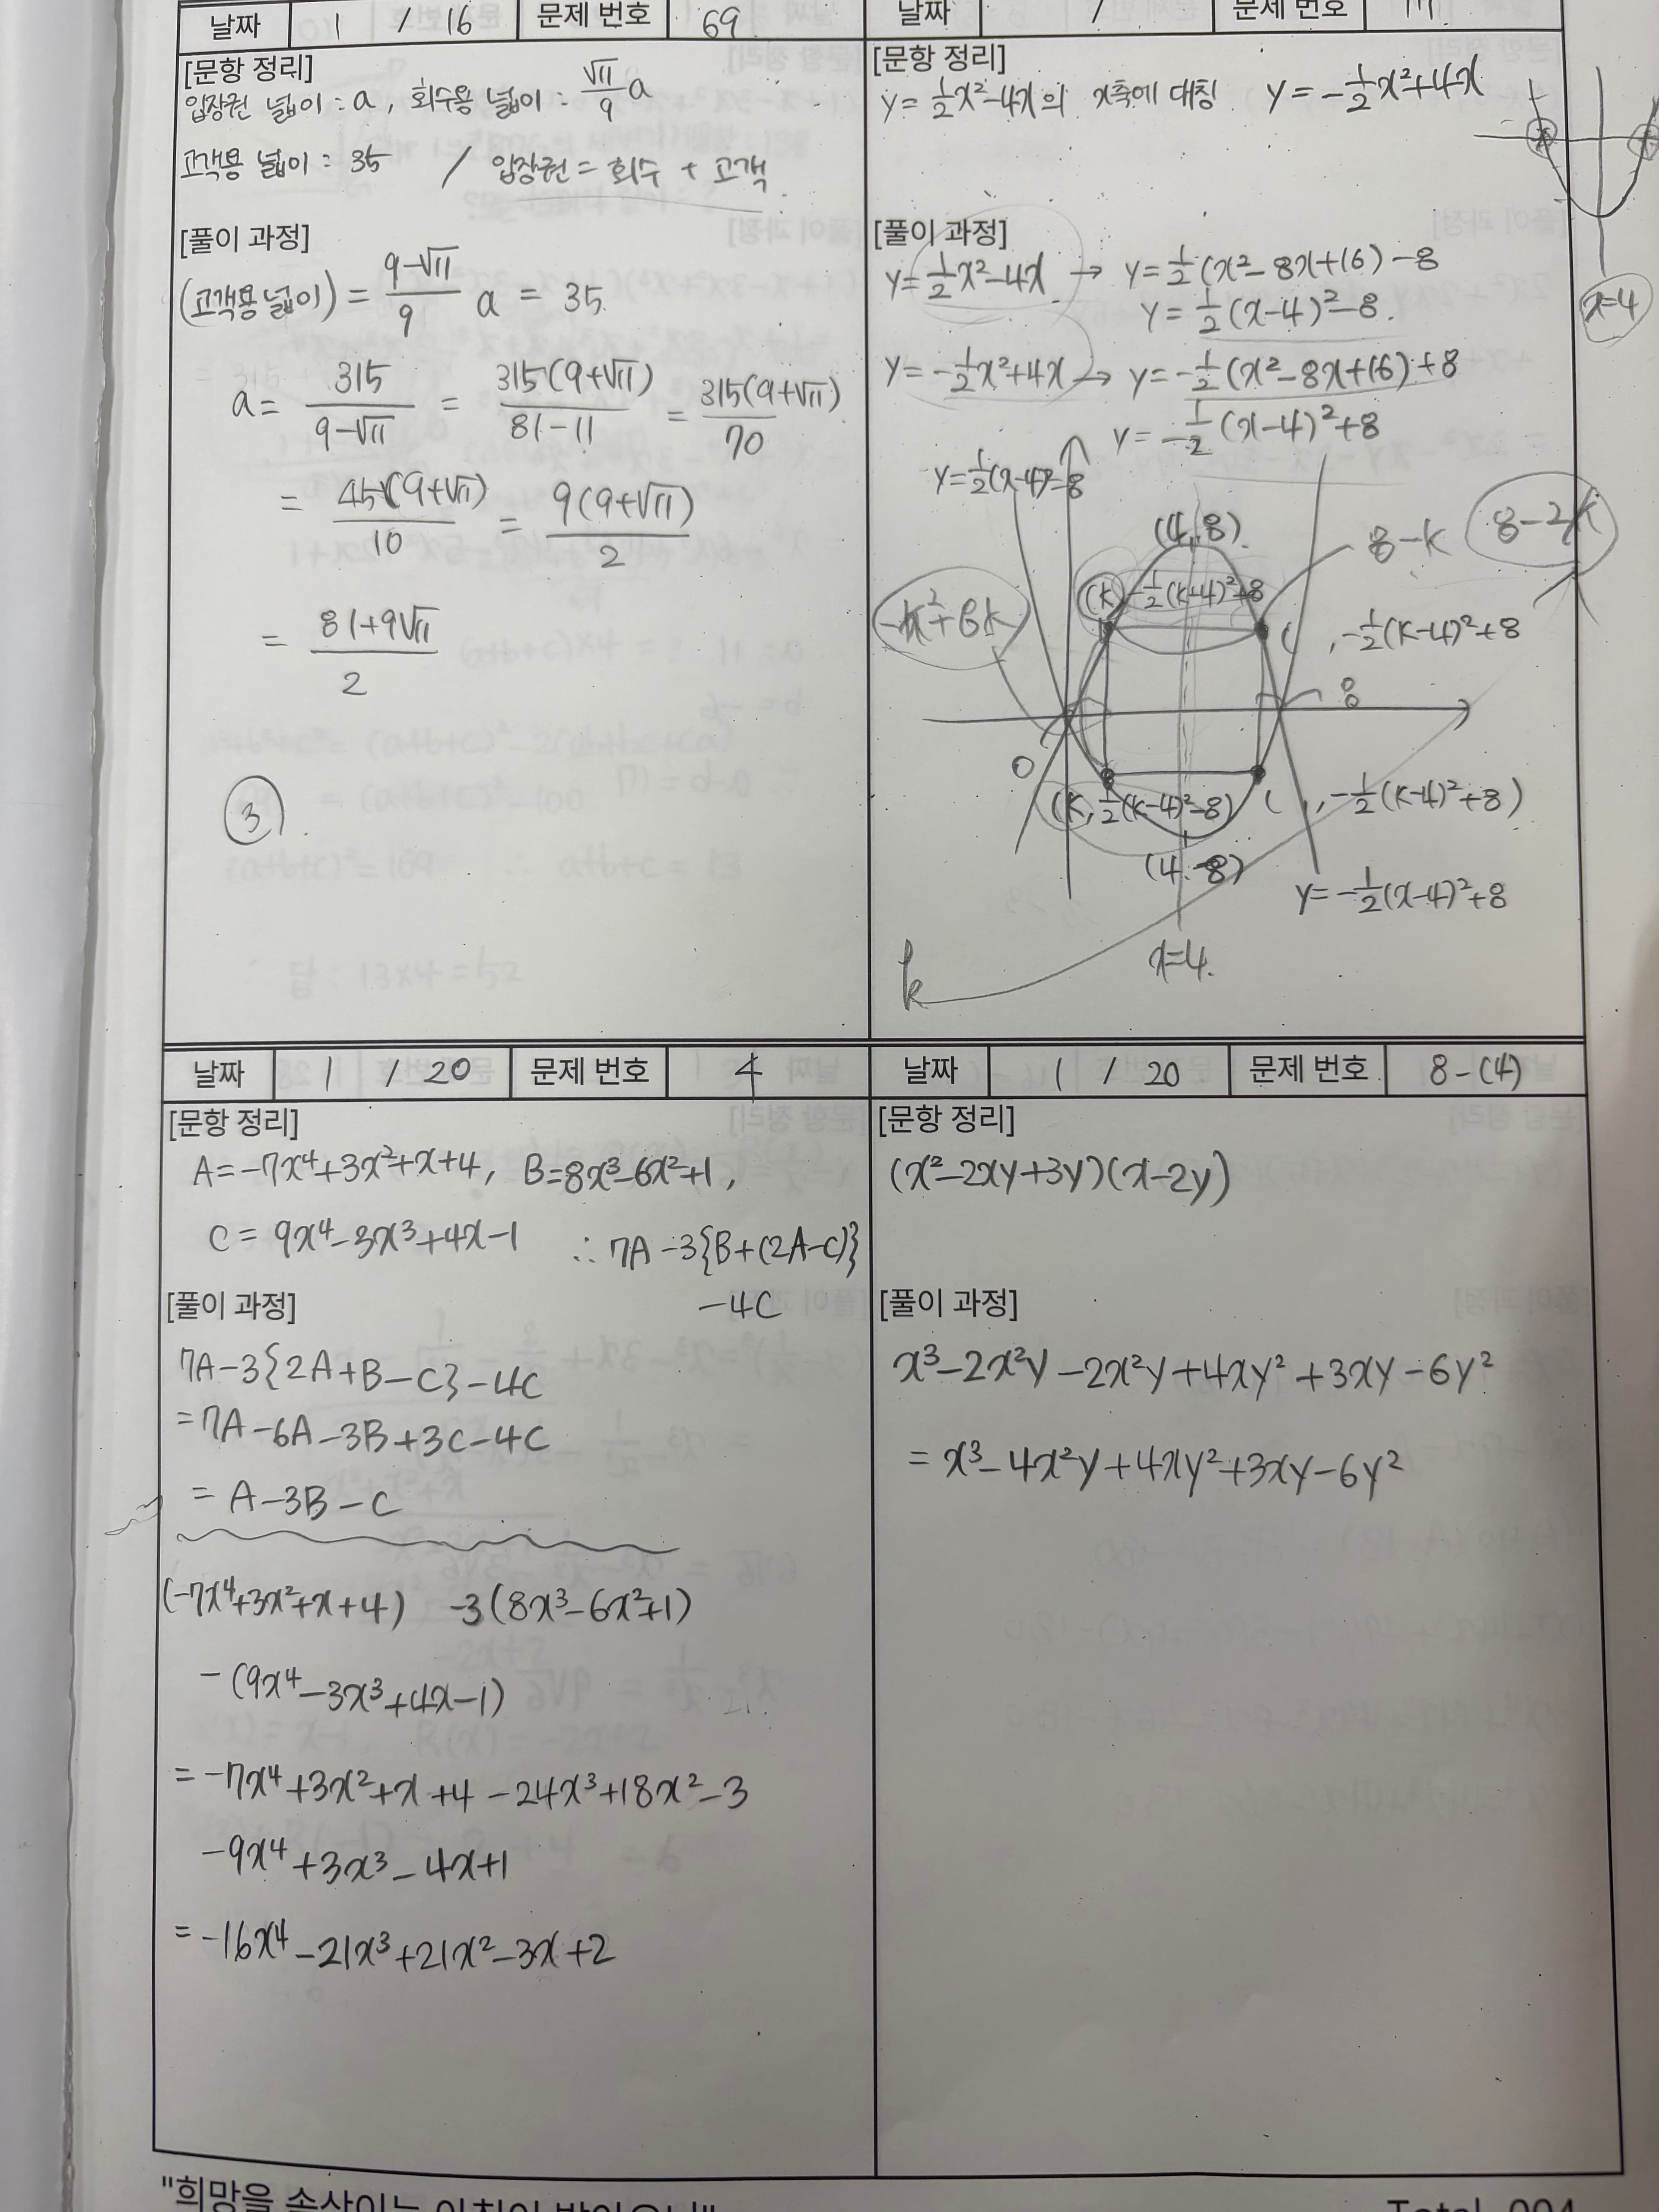 날짜 1 / 16 문제 번호 69
[문항 정리]
입장권 넓이 : a, 회수용 넓이 : √11/9 a
고객용 넓이 : 35 / 입장권 = 회수 + 고객
[풀이 과정]
(고객용 넓이) = (9-√11)/9 a = 35.
a = 315/(9-√11) = 315(9+√11)/(81-11) = 315(9+√11)/70
= 45(9+√11)/10 = 9(9+√11)/2
= (81+9√11)/2
③
날짜 / 문제 번호
[문항 정리]
y=1/2x²-4x의 x축에 대칭 y=-1/2x²+4x
x=4
[풀이 과정]
y=1/2x²-4x → y=1/2(x²-8x+16)-8
y=1/2(x-4)²-8.
y=-1/2x²+4x → y=-1/2(x²-8x+16)+8
y=-1/2(x-4)²+8
y=1/2(x-4)²-8
(4,8).
8-k
8-2k
(k, -1/2(k-4)²+8
( , -1/2(k-4)²+8
8
O
(k, 1/2(k-4)²-8)
( , -1/2(k-4)²+8)
(4,-8)
y=-1/2(x-4)²+8
x=4.
k
날짜 1 / 20 문제 번호 4
[문항 정리]
A=-7x⁴+3x²+x+4, B=8x³-6x²+1,
C=9x⁴-3x³+4x-1 ∴ 7A-3{B+(2A-C)}
-4C
[풀이 과정]
7A-3{2A+B-C}-4C
=7A-6A-3B+3C-4C
= A-3B-C
(-7x⁴+3x²+x+4) -3(8x³-6x²+1)
-(9x⁴-3x³+4x-1)
=-7x⁴+3x²+x+4-24x³+18x²-3
-9x⁴+3x³-4x+1
=-16x⁴-21x³+21x²-3x+2
날짜 1 / 20 문제 번호 8-(4)
[문항 정리]
(x²-2xy+3y)(x-2y)
[풀이 과정]
x³-2x²y-2x²y+4xy²+3xy-6y²
= x³-4x²y+4xy²+3xy-6y²